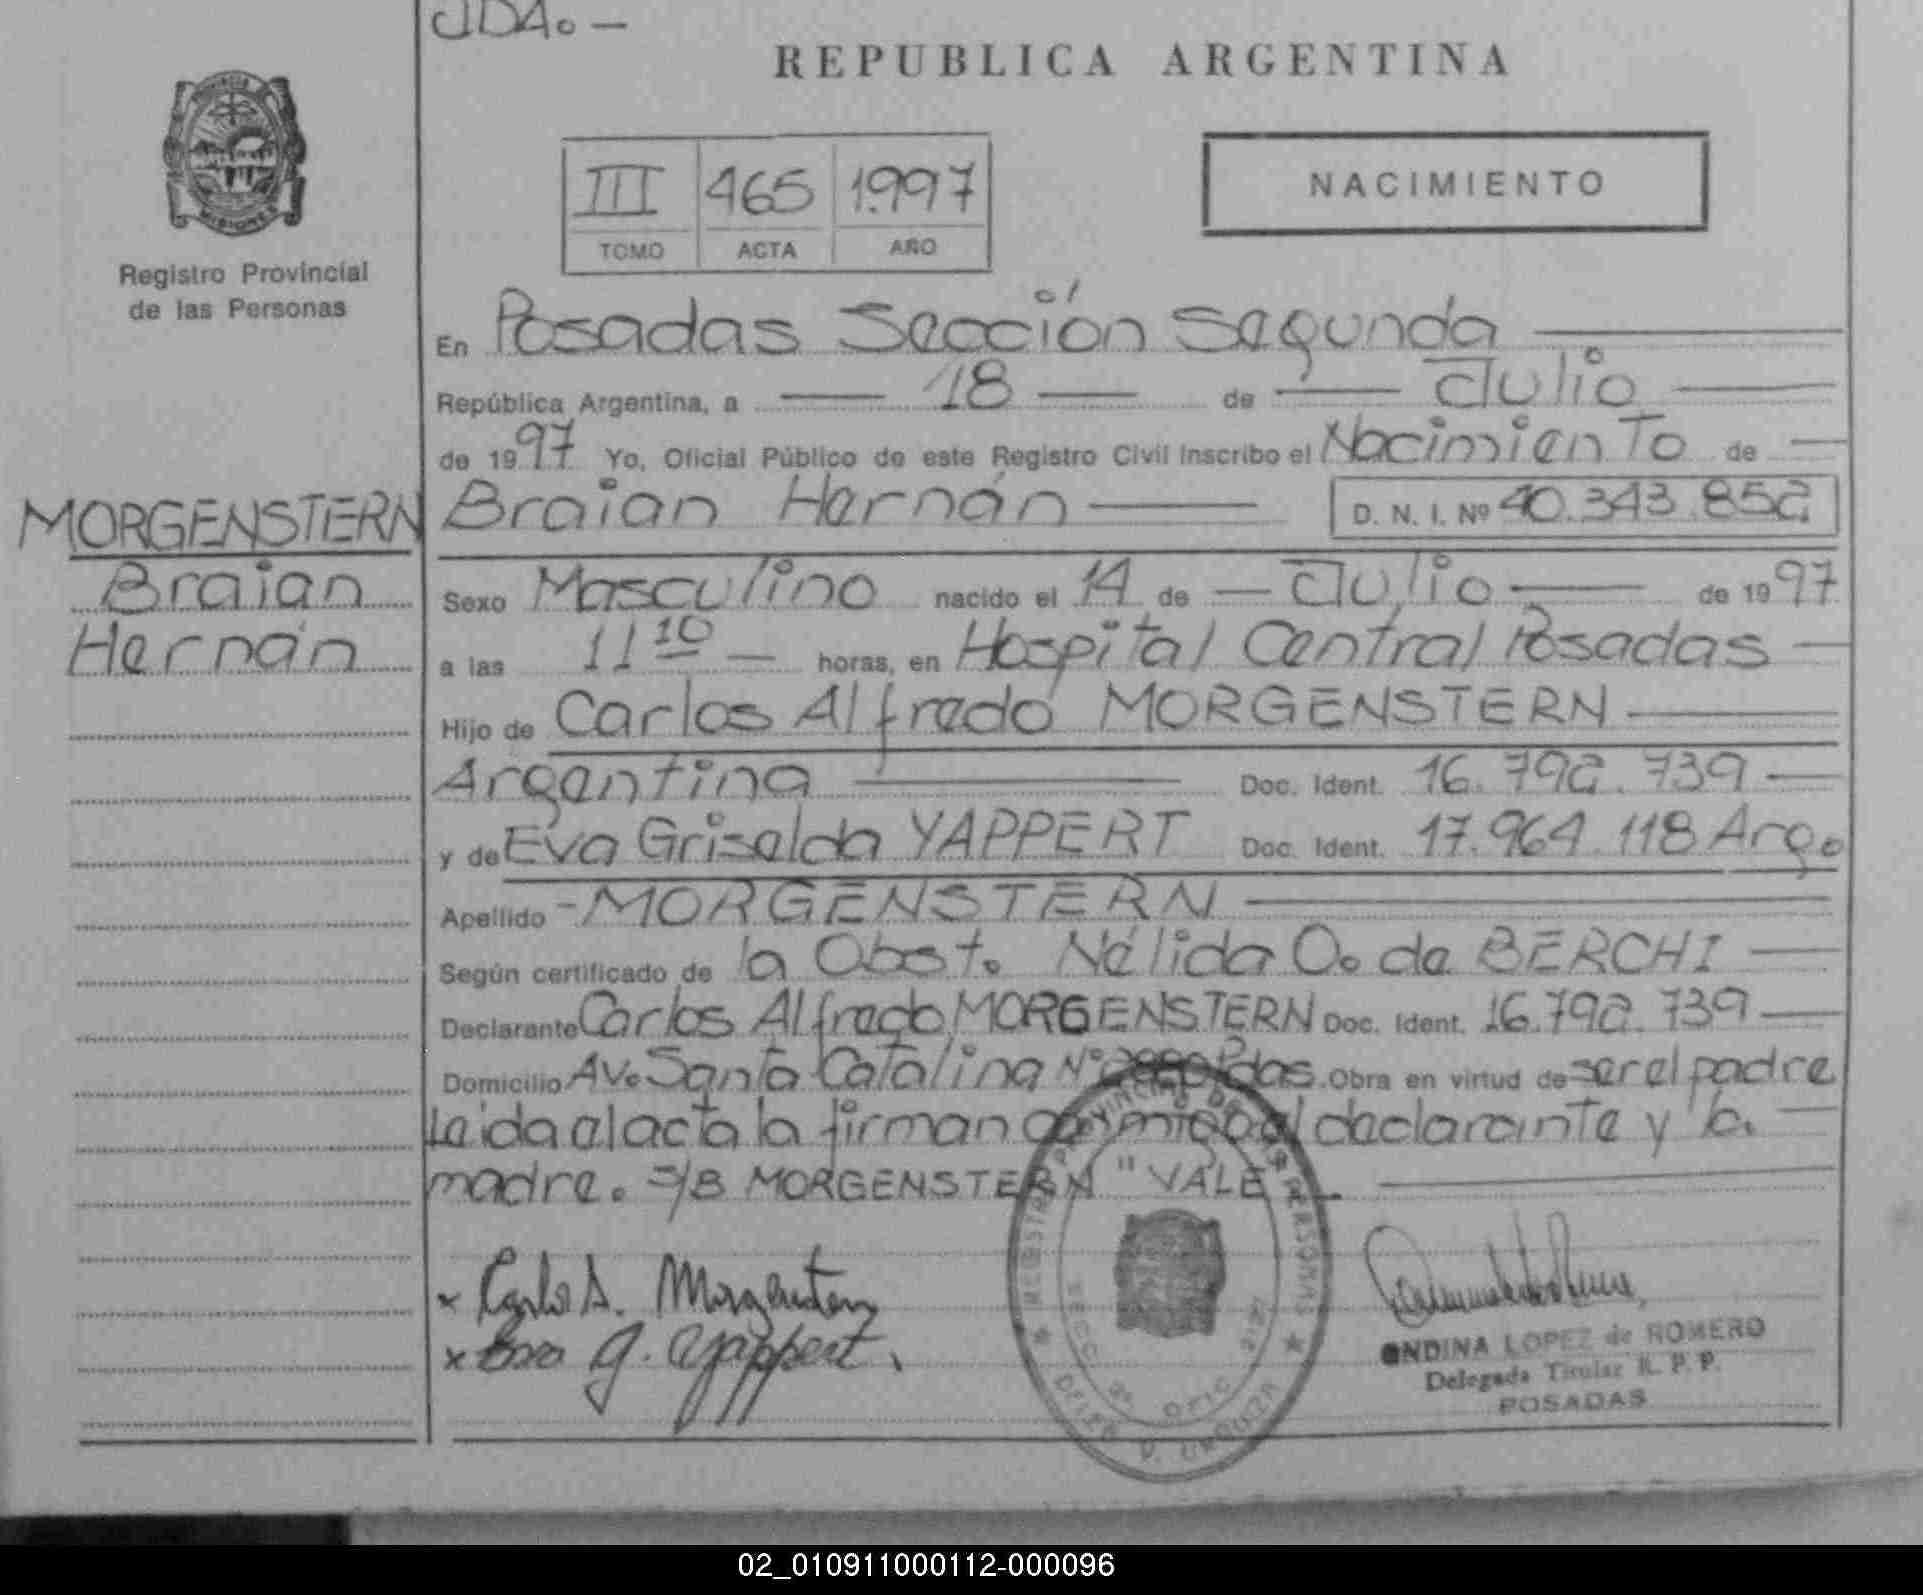 JDA. —
REPUBLICA ARGENTINA
PROVINCIA
MISIONES
Registro Provincial
de las Personas
III 465 1997
TOMO ACTA AÑO
NACIMIENTO
En Posadas Sección Segunda
República Argentina, a — 18 — de — Julio —
de 1997 Yo, Oficial Público de este Registro Civil Inscribo el Nacimiento de —
MORGENSTERN
Braian
Hernán
Braian Hernán — D. N. I. Nº 40.343.852
Sexo Masculino nacido el 14 de — Julio — de 1997
a las 11 10 — horas, en Hospital Central Posadas —
Hijo de Carlos Alfredo MORGENSTERN —
Argentina — Doc. Ident. 16.792.739 —
y de Eva Griselda YAPPERT Doc. Ident. 17.964.118 Arg.
Apellido - MORGENSTERN —
Según certificado de la Obst. Nélida O. de BERCHI —
Declarante Carlos Alfredo MORGENSTERN Doc. Ident. 16.792.739 —
Domicilio Av. Santa Catalina Nº Pdas. Obra en virtud de ser el padre
Leida el acta la firman conmigo el declarante y la —
madre. S/B MORGENSTERN "VALE —
x Carlos A. Morgenstern
x Eva G. Yappert.
REGISTRO PROVINCIAL DE LAS PERSONAS
ONDINA LOPEZ de ROMERO
Delegada Titular R. P. P.
POSADAS
02_010911000112-000096